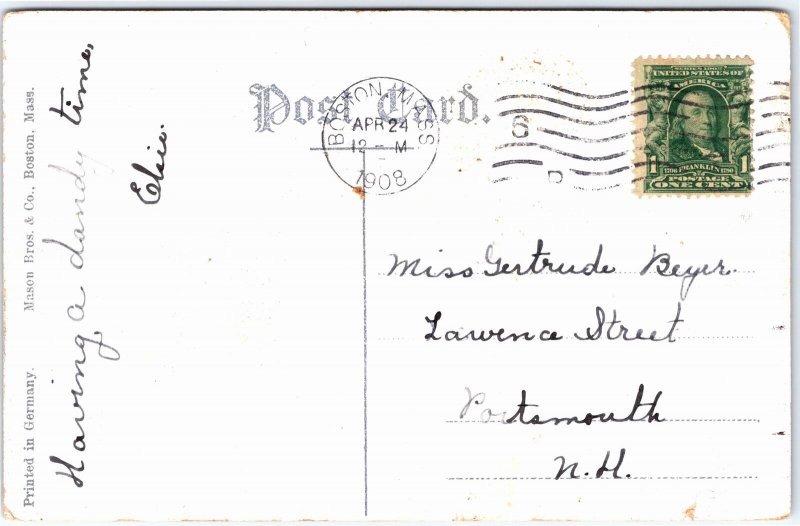 Post Card.
BOSTON, MASS
APR 24
12 - M
1908
6
SERIES 1902
UNITED STATES OF
AMERICA
1 1
1706 FRANKLIN 1790
POSTAGE
ONE CENT
Miss Gertrude Beyer
Lawence Street
Portsmouth
N.H.
Having a dandy time,
Elsie.
Printed in Germany. Mason Bros. & Co., Boston, Mass.